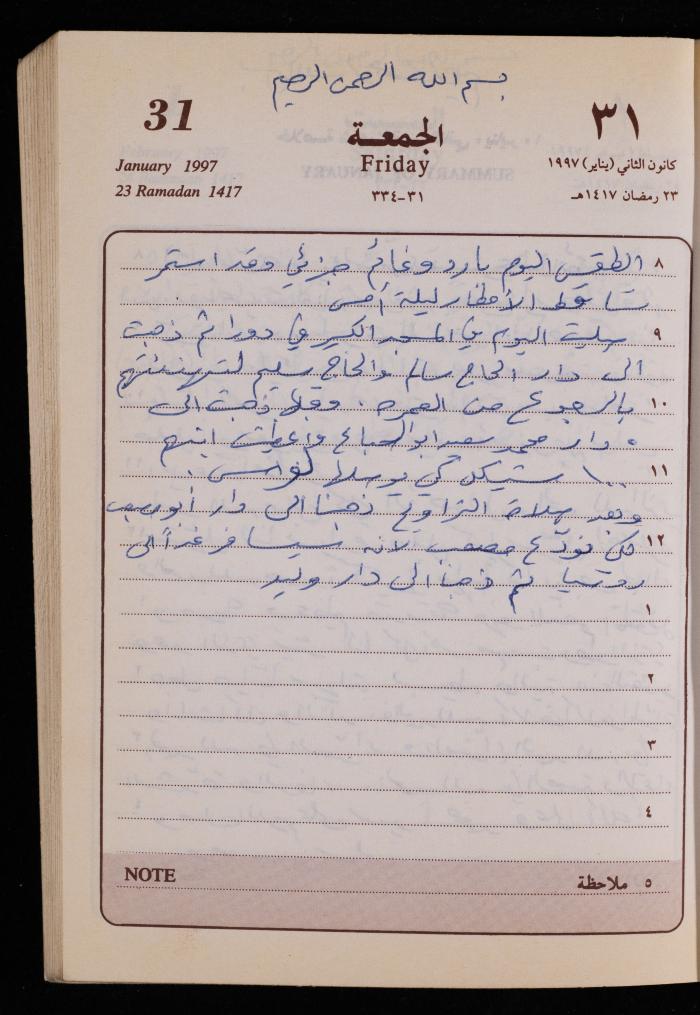 بسم الله الرحمن الرحيم
31
الجمعة
٣١
January 1997
Friday
كانون الثاني (يناير) ١٩٩٧
23 Ramadan 1417
٣١-٣٣٤
٢٣ رمضان ١٤١٧هـ
٨ الطقس اليوم بارد وغائم جزئي وقد استمر
تساقط الأمطار ليلة أمس
٩ صليت اليوم في المسجد الكبير في دورا ثم ذهبت
الى دار الحاج سالم والحاج سليم لتهنئتهم
١٠ بالرجوع من العمره . وقبلها ذهبت الى
دار محمد سعيد ابو الصباع وأعطيت ابنتهم
١١ ١٠٠ شيكل كي يوسلها
وبعد صلاة التراويح ذهبنا الى دار أبو
١٢ كي نودع مصعب لأنه سيسافر غداً الى
روسيا ثم ذهبنا الى دار وليد
١
٢
٣
٤
NOTE
٥ ملاحظة